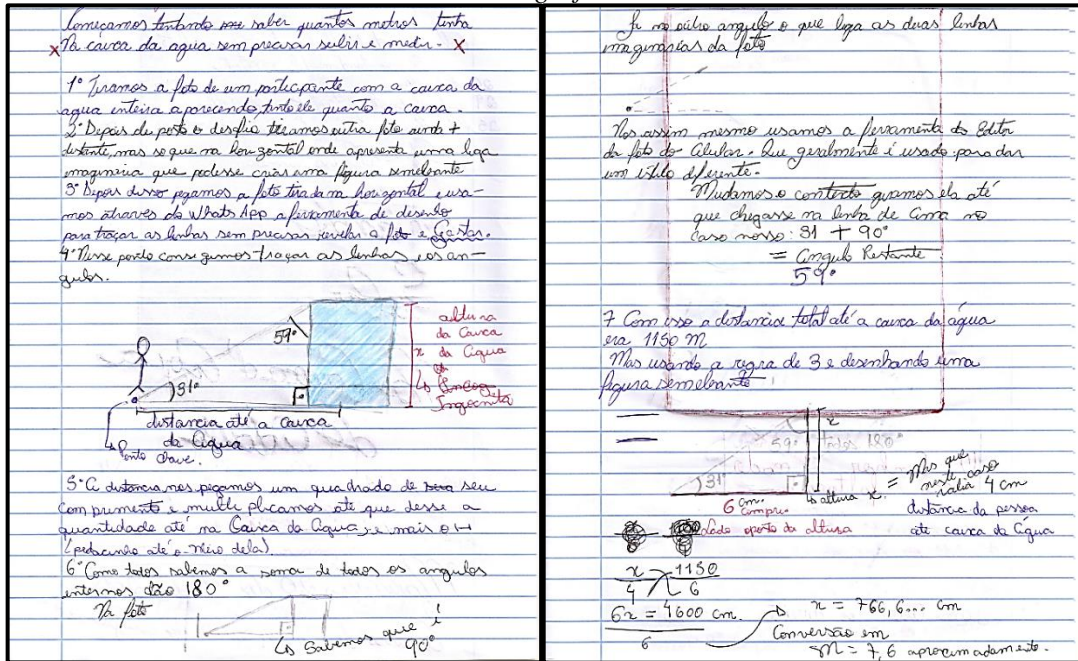 Começamos tentando saber quantos metros tinha
x Na caixa da agua sem precisar subir e medir. x
1° Tiramos a foto de um participante com a caixa da
agua inteira aparecendo, tanto ele quanto a caixa.
2° Depois de posto o desafio tiramos outra foto ainda +
distante, mas so que na horizontal onde apresenta uma
imaginária que pudesse criar uma figura semelhante
3° Depois disso pegamos a foto tirada na horizontal e usa-
mos através do WhatsApp a ferramenta de desenho
para traçar as linhas sem precisar revelar a foto e Gastar.
4° Nesse ponto conseguimos traçar as linhas e os an-
gulos.
59°
31°
altura
da Caixa
x da Água
↳ Incog
Ingocnita
distancia até a caixa
da Água
↳ Ponto Chave.
5° A distancia nos pegamos um quadrado de seu
comprimento e multiplicamos até que desse a
quantidade até na Caixa da Água, e mais o
(pedacinho até o meio dela).
6° Como todos sabemos a soma de todos os angulos
internos dão 180°
Na foto
↳ Sabemos que é
90°
no outro angulo o que liga as duas linhas
imaginárias da foto
Mas assim mesmo usamos a ferramenta do Editor
da foto do Celular. Que geralmente é usado para dar
um estilo diferente.
Mudamos o contexto giramos ela até
que chegasse na linha de Cima no
caso nosso: 31 + 90°
= Angulo Restante
59°
7 Com isso a distancia total até a caixa da água
era 1150 M
Mas usando a regra de 3 e desenhando uma
figura semelhante
x
59°
180°
31°
6 cm.
Compri.
↳ altura x. = Mas que
neste caso
valia 4 cm
Lado oposto da altura
distância da pessoa
até caixa da Água
x 1150
4 6
6x = 4600 cm.
6
x = 766,6... cm
Conversão em
M = 7,6 aproximadamente.